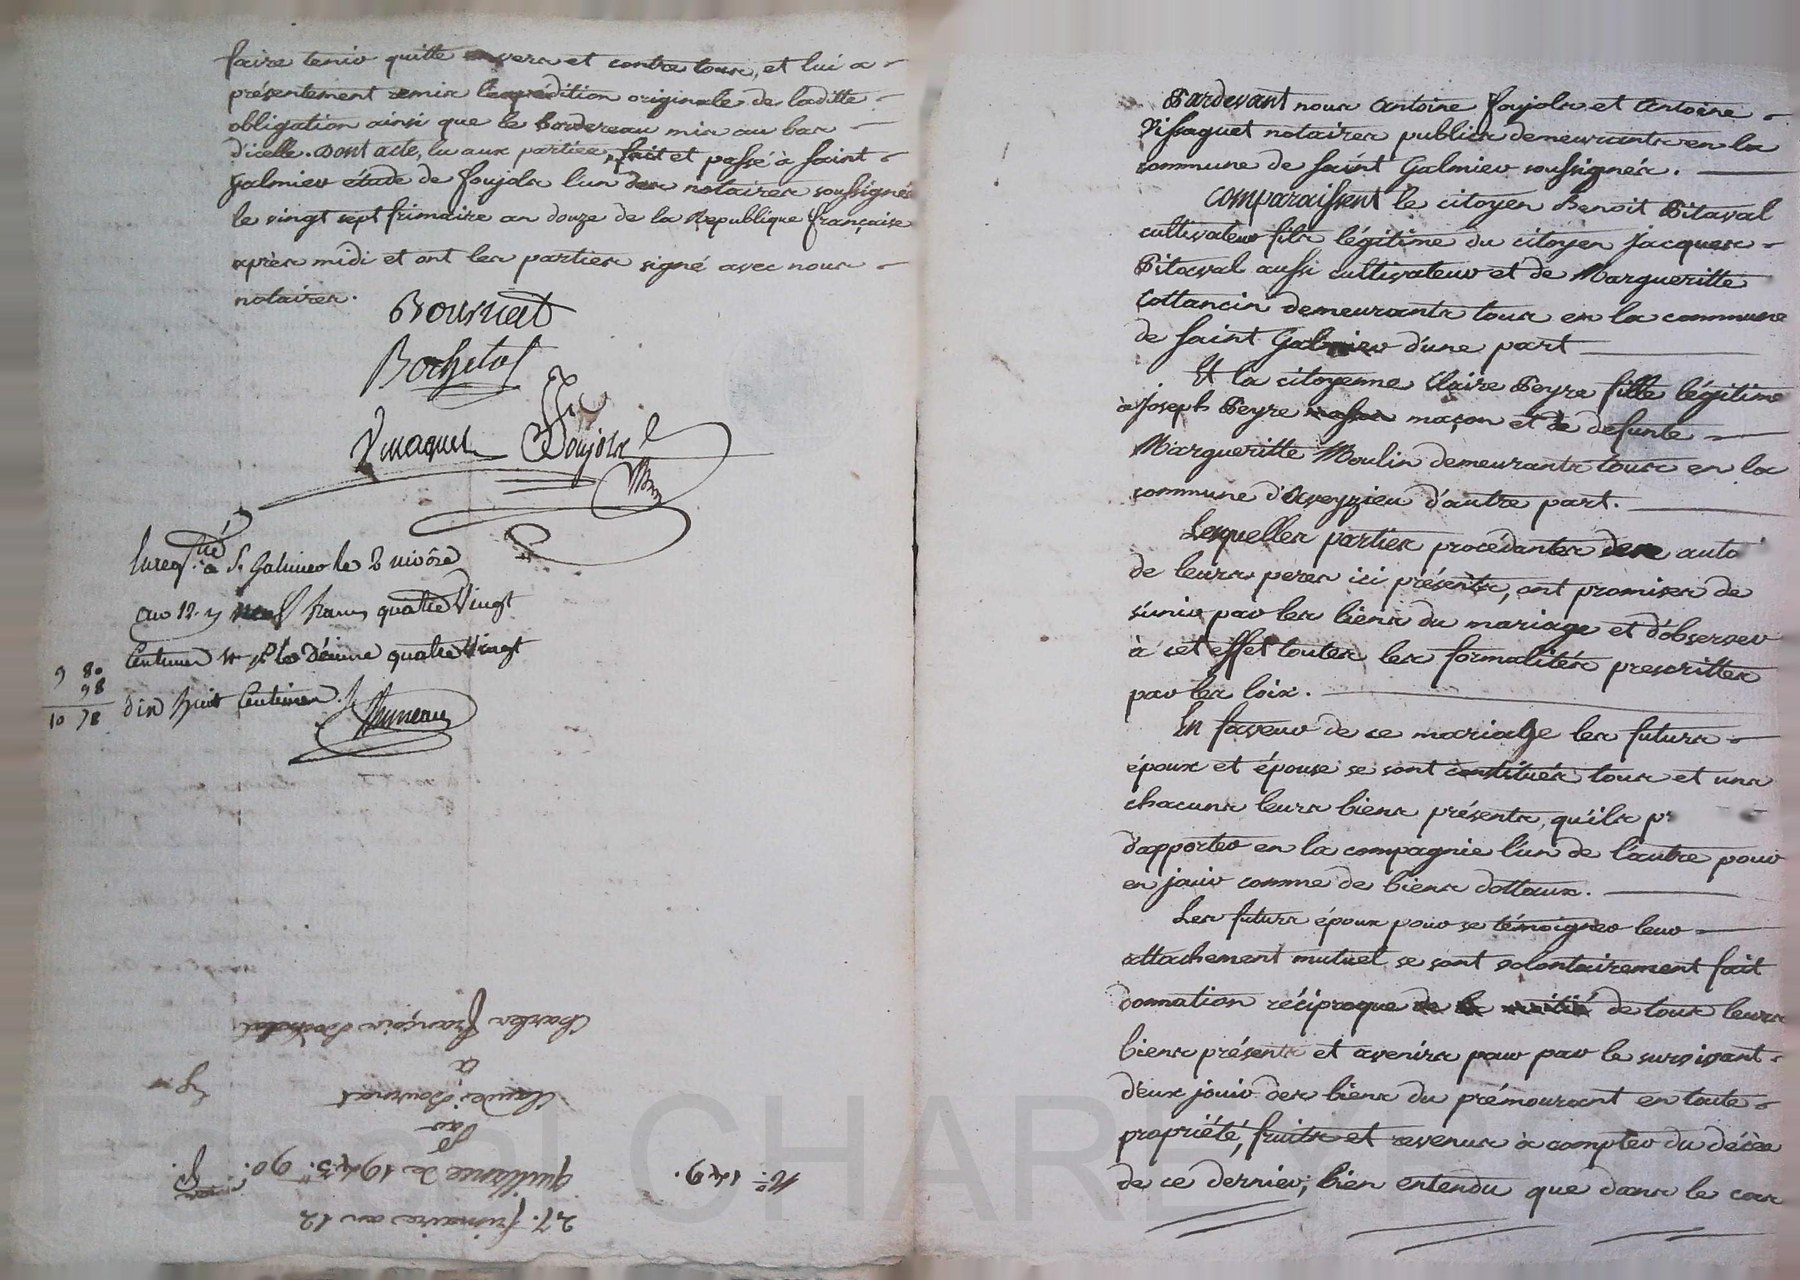 faire tenir quitte envers et contre tous, et lui a
présentement remis l'expédition originale de laditte
obligation ainsi que le Bordereau mis au bas
d'icelle. Dont acte, lu aux parties, fait et passé à Saint
Galmier étude de Foujols l'un des notaires soussignés
le vingt sept frimaire an douze de la République française
après midi et ont les parties signé avec nous
notaires.
Bournat
Bochetal
Vissaguet Foujols
Enregtré à St Galmier le 2 nivôse
an 12. neuf francs quatre Vingt
Centimes Décime quatre Vingt
dix huit Centimes.
9 80
98
10 78
27. frimaire an 12
No. 149. quittance de 1943. 90.
Par
Claude Bournat
a
Charles François Bochetal
Pardevant nous Antoine Foujols et Antoine
Vissaguet notaires publics demeurants en la
commune de Saint Galmier soussignés.
Comparaissent le citoyen Benoit Pitaval
cultivateur fils légitime du citoyen Jacques
Pitaval aussi cultivateur et de Margueritte
Cottancin demeurants tous en la commune
de Saint Galmier d'une part
Et la citoyenne Claire Peyre fille légitime
à Joseph Peyre maçon et de defunte
Margueritte Moulin demeurants tous en la
commune d'Aveyzieu d'autre part.
Lesquelles parties procédantes de auto
de leurs peres ici présents, ont promises de
s'unir par les liens du mariage et d'observer
à cet effet toutes les formalités prescrittes
par les loix.
En faveur de ce mariage les futurs
époux et épouse se sont constitués tous et uns
chacuns leurs biens présents, qu'ils p
d'apporter en la compagnie l'un de l'autre pour
en jouir comme de biens dottaux.
Les futurs époux pour se témoigner leur
attachement mutuel se sont volontairement fait
donnation réciproque de la moitié de tous leurs
biens présents et avenirs pour par le survivant
d'eux jouir des biens du prémourant en toute
propriété, fruits et revenus à compter du décès
de ce dernier; bien entendu que dans le cas
PascalCHAREYRON